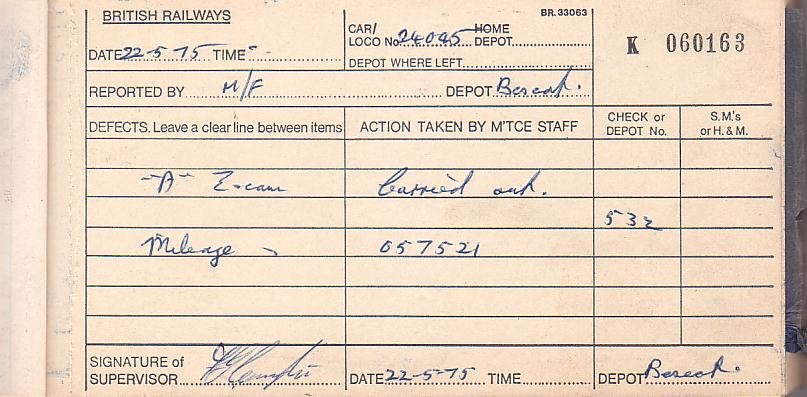 BRITISH RAILWAYS
BR.33063
DATE 22-5-75 TIME
CAR/ LOCO No. 24045 HOME DEPOT
K 060163
DEPOT WHERE LEFT
REPORTED BY M/F DEPOT Bescot.
DEFECTS. Leave a clear line between items
ACTION TAKEN BY M'TCE STAFF
CHECK or DEPOT No.
S.M.'s or H. & M.
"A" Exam Carried out.
532
Mileage 057521
SIGNATURE of SUPERVISOR
DATE 22-5-75 TIME
DEPOT Bescot.